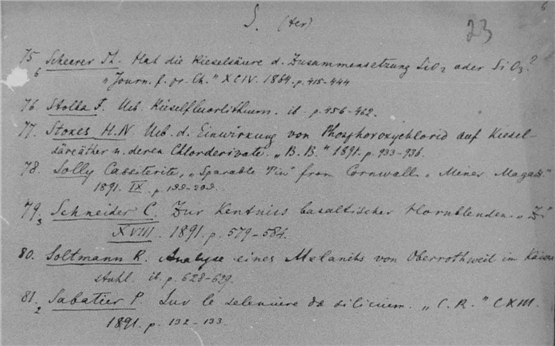 S. (ter)
23
6
75 Scheerer Th. Hat die Kieselsäure d. Zusammensetzung SiO2 oder SiO3?
6 "Journ. f. pr. Ch." XCIV. 1864. p. 415-444
76 Stolba F. Ueb. Kieselfluorlithium. it. p. 456-462.
77. Stokes H.N. Ueb. d. Einwirkung von Phosphoroxychlorid auf Kiesel-
säureäther u. deren Chlorderivate. "B.B." 1891. p. 933-936.
78. Solly Cassiterite, "Sparable Tin" from Cornwall. "Miner. Magaz."
1891. IX. p.
79. Schneider C. Zur Kentniss basaltischer Hornblenden. "Z"
3 XVIII. 1891. p. 579-584.
80. Soltmann R. Analyse eines Melanits von Oberrothweil im Kaiser
stuhl. it. p. 628-629.
81. Sabatier P. Sur le seleniure de silicium. "C.R." CXIII.
2 1891. p. 132-133.